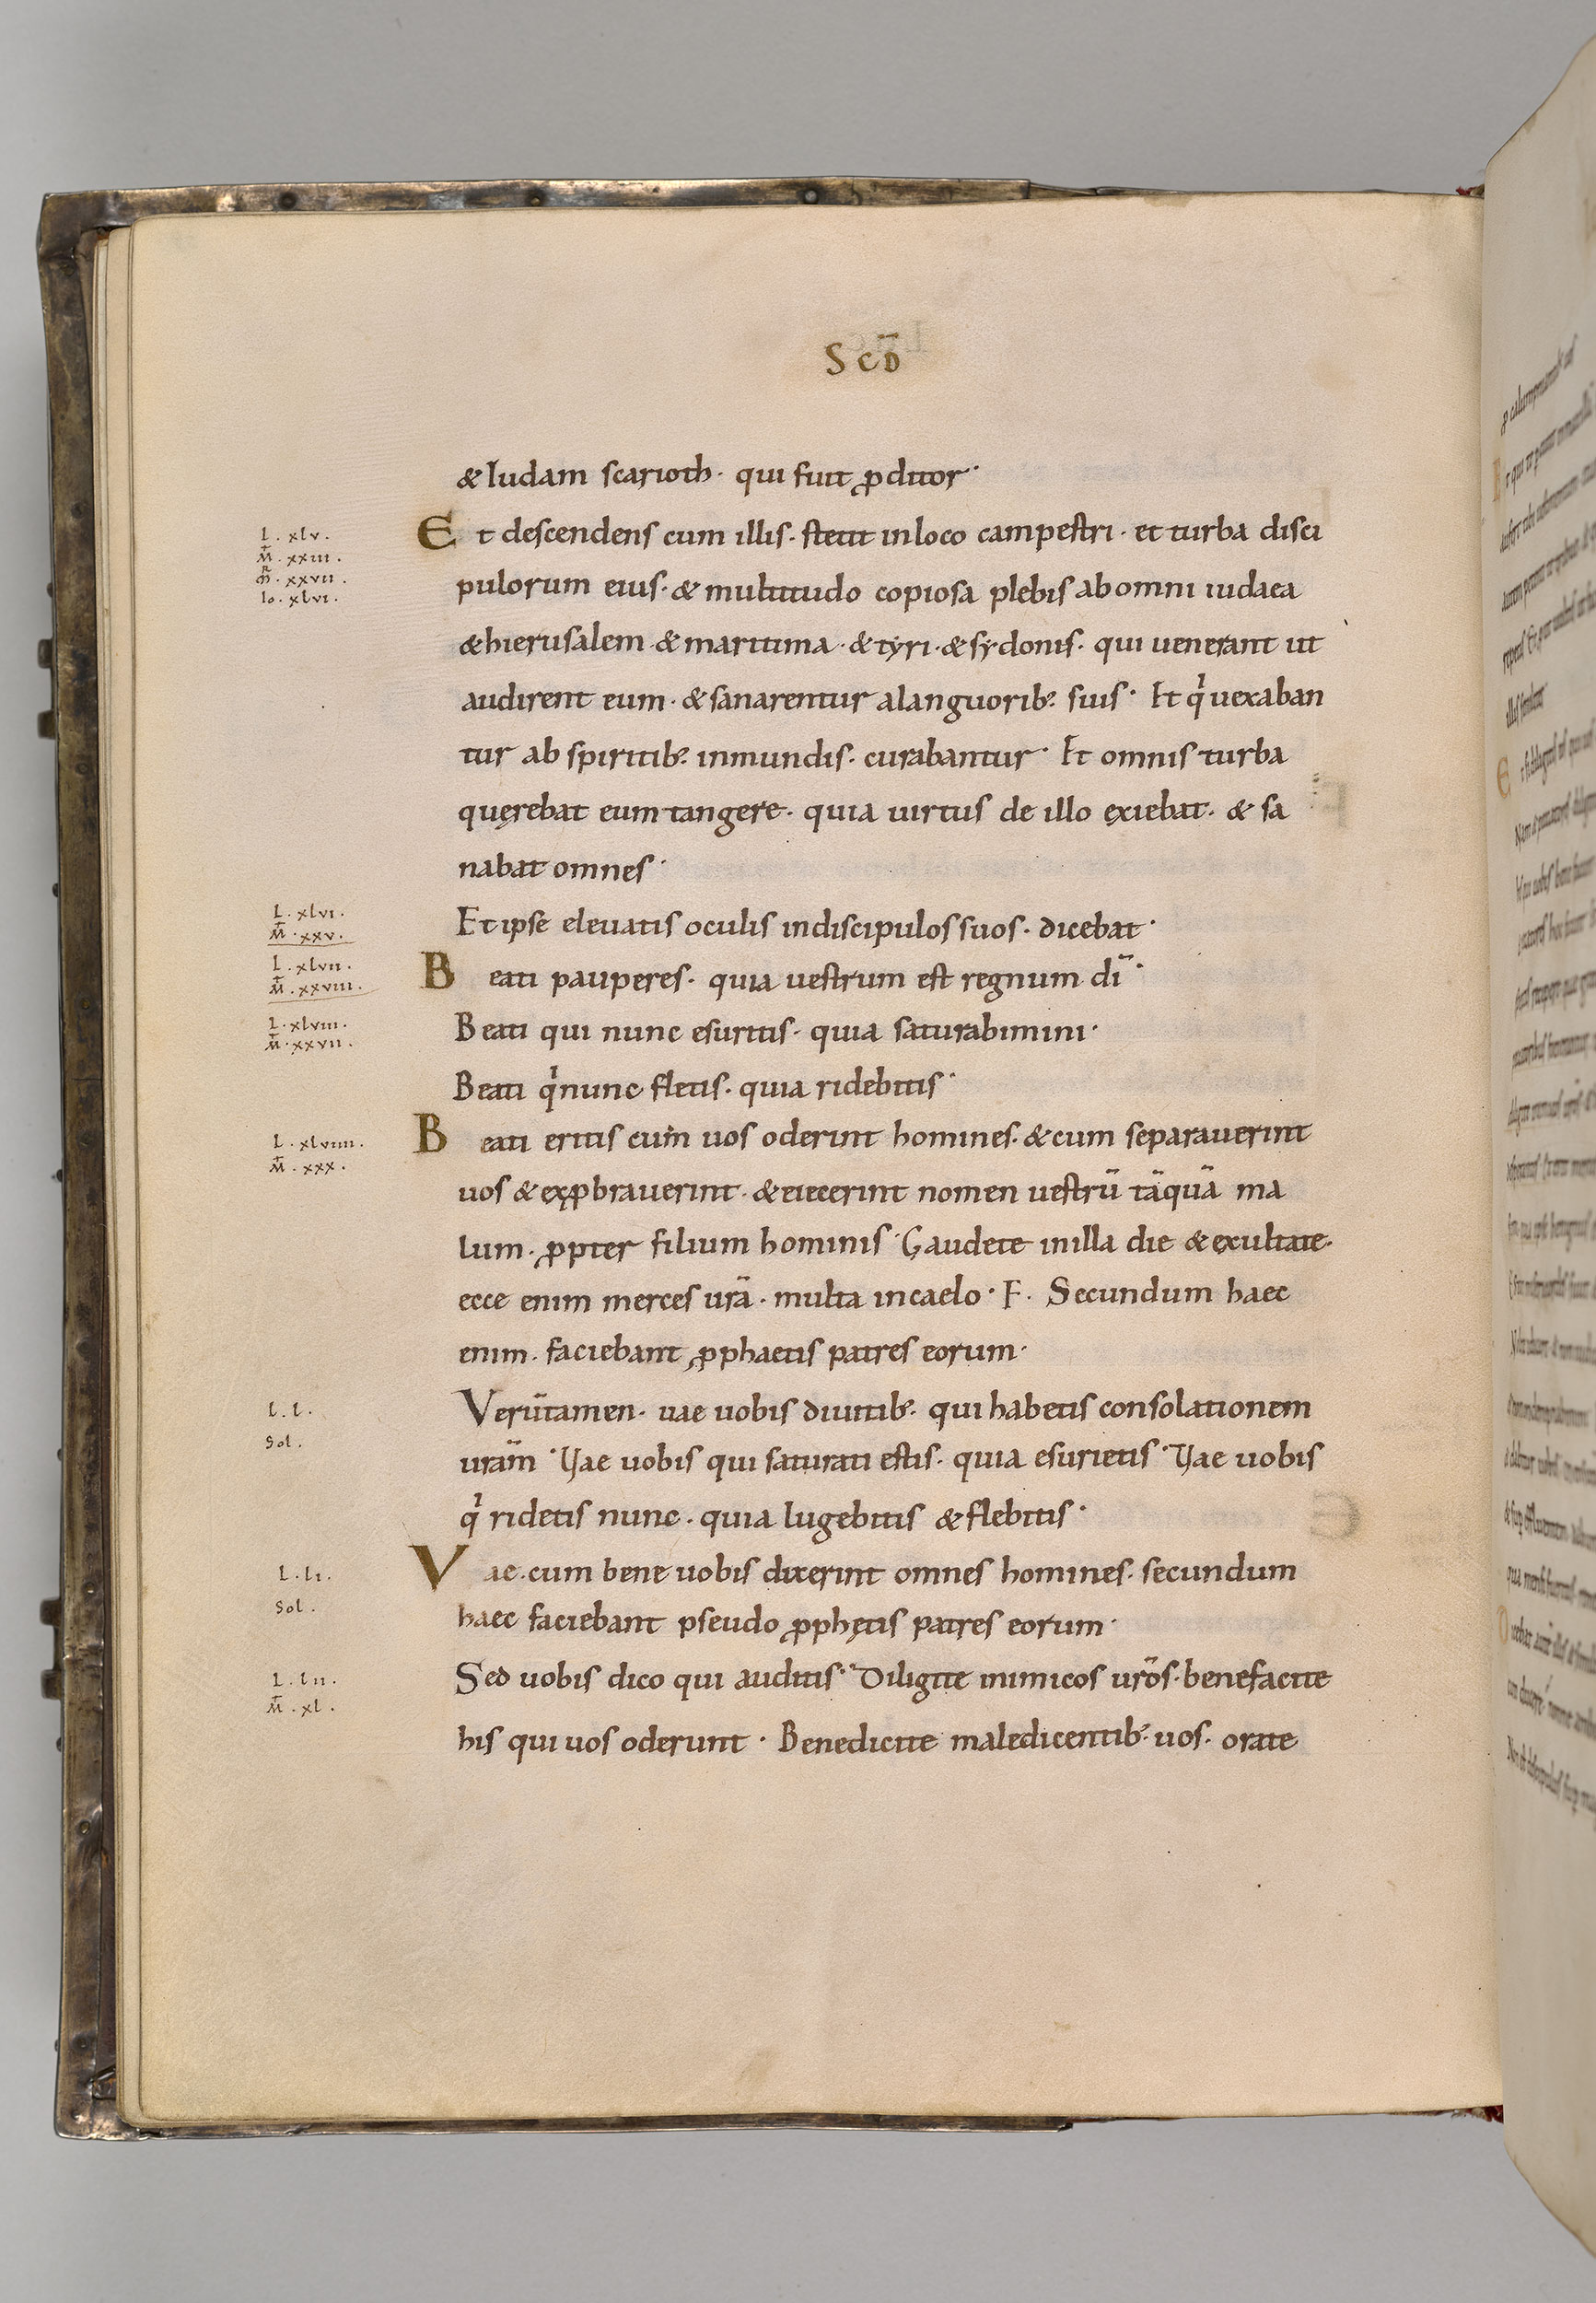 SCD̄
& Iudam scarioth· qui fuit ꝓditor·
L. xlv.
M̄. xxiii.
M̄. xxvii.
Io. xlvi.
Et descendens cum illis· stetit in loco campestri· et turba disci
pulorum eius· & multitudo copiosa plebis ab omni iudaea
& hierusalem & maritima· & tyri· & sydonis· qui uenerant ut
audirent eum· & sanarentur a languorib; suis· Et qͥ uexaban
tur ab spiritib; inmundis· curabantur· Et omnis turba
quęrebat eum tangere· quia uirtus de illo exiebat· & sa
nabat omnes·
L. xlvi.
M̄. xxv.
Et ipse eleuatis oculis in discipulos suos· dicebat·
L. xlvii.
M̄. xxviii.
Beati pauperes· quia uestrum est regnum dī·
L. xlviii.
M̄. xxvii.
Beati qui nunc esuritis· quia saturabimini·
Beati qͥ nunc fletis· quia ridebitis·
L. xlviiii.
M̄. xxx.
Beati eritis cum uos oderint homines· & cum separauerint
uos & exꝓbrauerint· & eiecerint nomen uestrū tāquā ma
lum· ꝓpter filium hominis· Gaudete in illa die & exultate·
ecce enim merces urā· multa in caelo· F. Secundum haec
enim· faciebant ꝓphaetis patres eorum·
L. l.
Sol.
Verūtamen· uae uobis diuitib; qui habetis consolationem
urām· Uae uobis qui saturati estis· quia esurietis· Uae uobis
qͥ ridetis nunc· quia lugebitis & flebitis·
L. li.
Sol.
Vae· cum bene uobis dixerint omnes homines· secundum
haec faciebant pseudo ꝓphętis patres eorum·
L. lii.
M̄. xl.
Sed uobis dico qui auditis· Diligite inimicos urōs· benefacite
his qui uos oderunt· Benedicite maledicentib; uos· orate